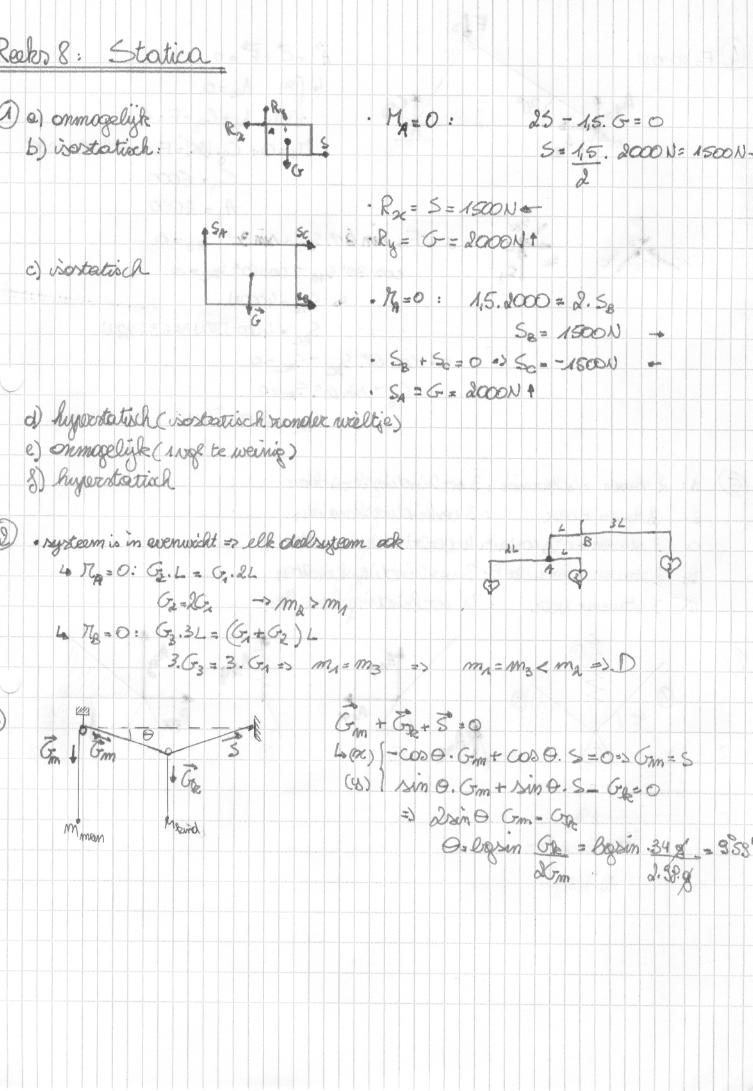 Reeks 8: Statica
1 a) onmogelijk
b) isostatisch:
Ry
Rx
A
S
G
· M_A = 0 : 2S - 1,5. G = 0
S = 1,5/2 . 2000N = 1500N
· Rx = S = 1500N ←
Ry = G = 2000N ↑
c) isostatisch
S_A
S_C
S_B
G
· M_A = 0 : 1,5.2000 = 2. S_B
S_B = 1500N →
· S_B + S_C = 0 => S_C = -1500N ←
· S_A = G = 2000N ↑
d) hyperstatisch (isostatisch zonder wieltje)
e) onmogelijk (1 vgl te weinig)
f) hyperstatisch
2 · systeem is in evenwicht => elk deelsysteem ook
L 3L
B
2L L
A
1 2 3
↳ M_A = 0: G2. L = G1. 2L
G2 = 2G1 → m2 > m1
↳ M_B = 0: G3. 3L = (G1 + G2) L
3. G3 = 3. G1 => m1 = m3 => m1 = m3 < m2 => D
θ
Gm Gm S
Gk
m man
m kind
Gm + Gk + S = 0
↳ (x) { -cosθ. Gm + cosθ. S = 0 => Gm = S
(y) { sinθ. Gm + sinθ. S - Gk = 0
=> 2sinθ Gm = Gk
θ = bgsin Gk/2Gm = Bgsin 34 g/2.98.g = 9°58'